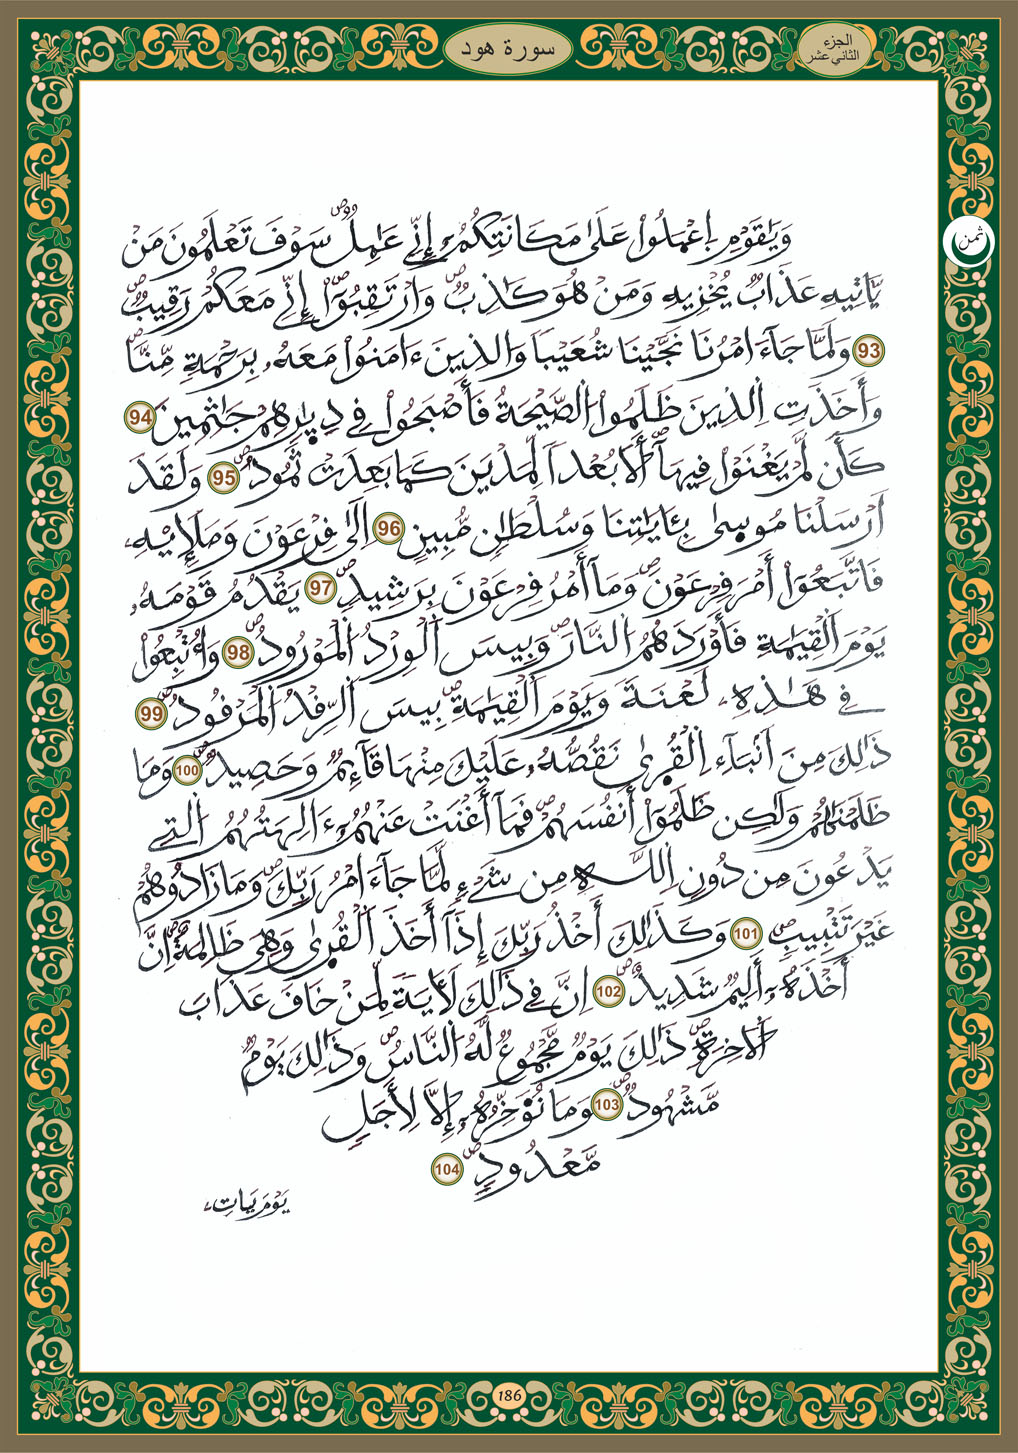 الجزء
الثاني عشر
سورة هود
ثمن
وَيَٰقَوْمِ اِعْمَلُواْ عَلَىٰ مَكَانَتِكُمُۥٓ إِنِّے عَٰمِلٞۖ سَوْفَ تَعْلَمُونَ مَنْ
يَّاتِيهِ عَذَابٞ يُخْزِيهِ وَمَنْ هُوَ كَٰذِبٞۖ وَارْتَقِبُوٓاْۖ إِنِّے مَعَكُمْ رَقِيبٞۖ
93 وَلَمَّا جَآءَ امْرُنَا نَجَّيْنَا شُعَيْباٗ وَالذِينَ ءَامَنُواْ مَعَهُۥ بِرَحْمَةٖ مِّنَّاۖ
وَأَخَذَتِ اِلذِينَ ظَلَمُواْ اُلصَّيْحَةُ فَأَصْبَحُواْ فِے دِيٰ۪رِهِمْ جَٰثِمِينَ 94
كَأَن لَّمْ يَغْنَوْاْ فِيهَآۖ أَلَا بُعْداٗ لِّمَدْيَنَ كَمَا بَعِدَتْ ثَمُودُۖ 95 وَلَقَدَ
اَرْسَلْنَا مُوس۪ىٰ بِـَٔايَٰتِنَا وَسُلْطَٰنٖ مُّبِينٍ 96 اِلَىٰ فِرْعَوْنَ وَمَلَإِيْهِۦ
فَاتَّبَعُوٓاْ أَمْرَ فِرْعَوْنَۖ وَمَآ أَمْرُ فِرْعَوْنَ بِرَشِيدٖۖ 97 يَقْدُمُ قَوْمَهُۥ
يَوْمَ اَلْقِيَٰمَةِ فَأَوْرَدَهُمُ اُلنَّارَۖ وَبِيسَ اَلْوِرْدُ اُلْمَوْرُودُۖ 98 وَأُتْبِعُواْ
فِے هَٰذِهِۦ لَعْنَةٗ وَيَوْمَ اَلْقِيَٰمَةِۖ بِيسَ اَلرِّفْدُ اُلْمَرْفُودُۖ 99
ذَٰلِكَ مِنَ اَنۢبَآءِ اِلْقُر۪ىٰ نَقُصُّهُۥ عَلَيْكَ مِنْهَا قَآئِمٞ وَحَصِيدٞۖ 100 وَمَا
ظَلَمْنَٰهُمْ وَلَٰكِن ظَلَمُوٓاْ أَنفُسَهُمْۖ فَمَآ أَغْنَتْ عَنْهُمُۥٓ ءَالِهَتُهُمُ اُلتِے
يَدْعُونَ مِن دُونِ اِللَّهِ مِن شَےْءٖ لَّمَّا جَآءَ امْرُ رَبِّكَۖ وَمَا زَادُوهُمْ
غَيْرَ تَتْبِيبٖۖ 101 وَكَذَٰلِكَ أَخْذُ رَبِّكَ إِذَآ أَخَذَ اَلْقُر۪ىٰ وَهِيَ ظَٰلِمَةٌۖ اِنَّ
أَخْذَهُۥٓ أَلِيمٞ شَدِيدٌۖ 102 اِنَّ فِے ذَٰلِكَ لَأٓيَةٗ لِّمَنْ خَافَ عَذَابَ
اَلَاخِرَةِۖ ذَٰلِكَ يَوْمٞ مَّجْمُوعٞ لَّهُ اُلنَّاسُۖ وَذَٰلِكَ يَوْمٞ
مَّشْهُودٞۖ 103 وَمَا نُؤَخِّرُهُۥٓ إِلَّا لِأَجَلٖ
مَّعْدُودٖۖ 104
يَوْمَ يَاتِۦ
186